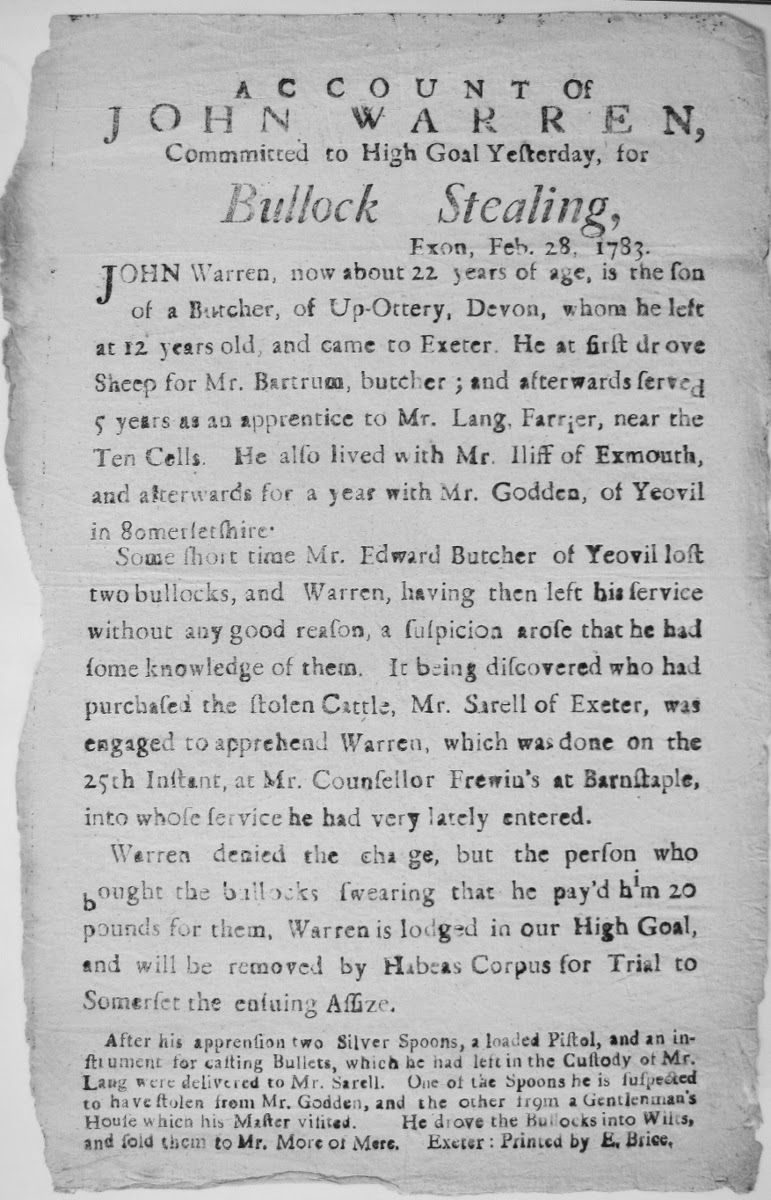 ACCOUNT Of
JOHN WARREN,
Commmitted to High Goal Yeſterday, for
Bullock Stealing,
Exon, Feb. 28, 1783.
JOHN Warren, now about 22 years of age, is the ſon
of a Butcher, of Up-Ottery, Devon, whom he left
at 12 years old, and came to Exeter. He at firſt drove
Sheep for Mr. Bartrum, butcher ; and afterwards ſerved
5 years as an apprentice to Mr. Lang, Farrier, near the
Ten Cells. He alſo lived with Mr. Iliff of Exmouth,
and afterwards for a year with Mr. Godden, of Yeovil
in 8omerſetſhire·
Some ſhort time Mr. Edward Butcher of Yeovil loſt
two bullocks, and Warren, having then left his ſervice
without any good reaſon, a ſuſpicion aroſe that he had
ſome knowledge of them. It being diſcovered who had
purchaſed the ſtolen Cattle, Mr. Sarell of Exeter, was
engaged to apprehend Warren, which was done on the
25th Inſtant, at Mr. Counſellor Frewin's at Barnſtaple,
into whoſe ſervice he had very lately entered.
Warren denied the cha ge, but the perſon who
bought the bullocks ſwearing that he pay'd him 20
pounds for them, Warren is lodged in our High Goal,
and will be removed by Habeas Corpus for Trial to
Somerſet the enſuing Aſſize.
After his apprenſion two Silver Spoons, a loaded Piſtol, and an in-
ſtrument for caſting Bullets, which he had left in the Cuſtody of Mr.
Lang were delivered to Mr. Sarell. One of the Spoons he is ſuſpected
to have ſtolen from Mr. Godden, and the other fr9m a Gentlenman's
Houſe which his Maſter viſited. He drove the Bullocks into Wilts,
and ſold them to Mr. More of Mere. Exeter : Printed by E. Brice.